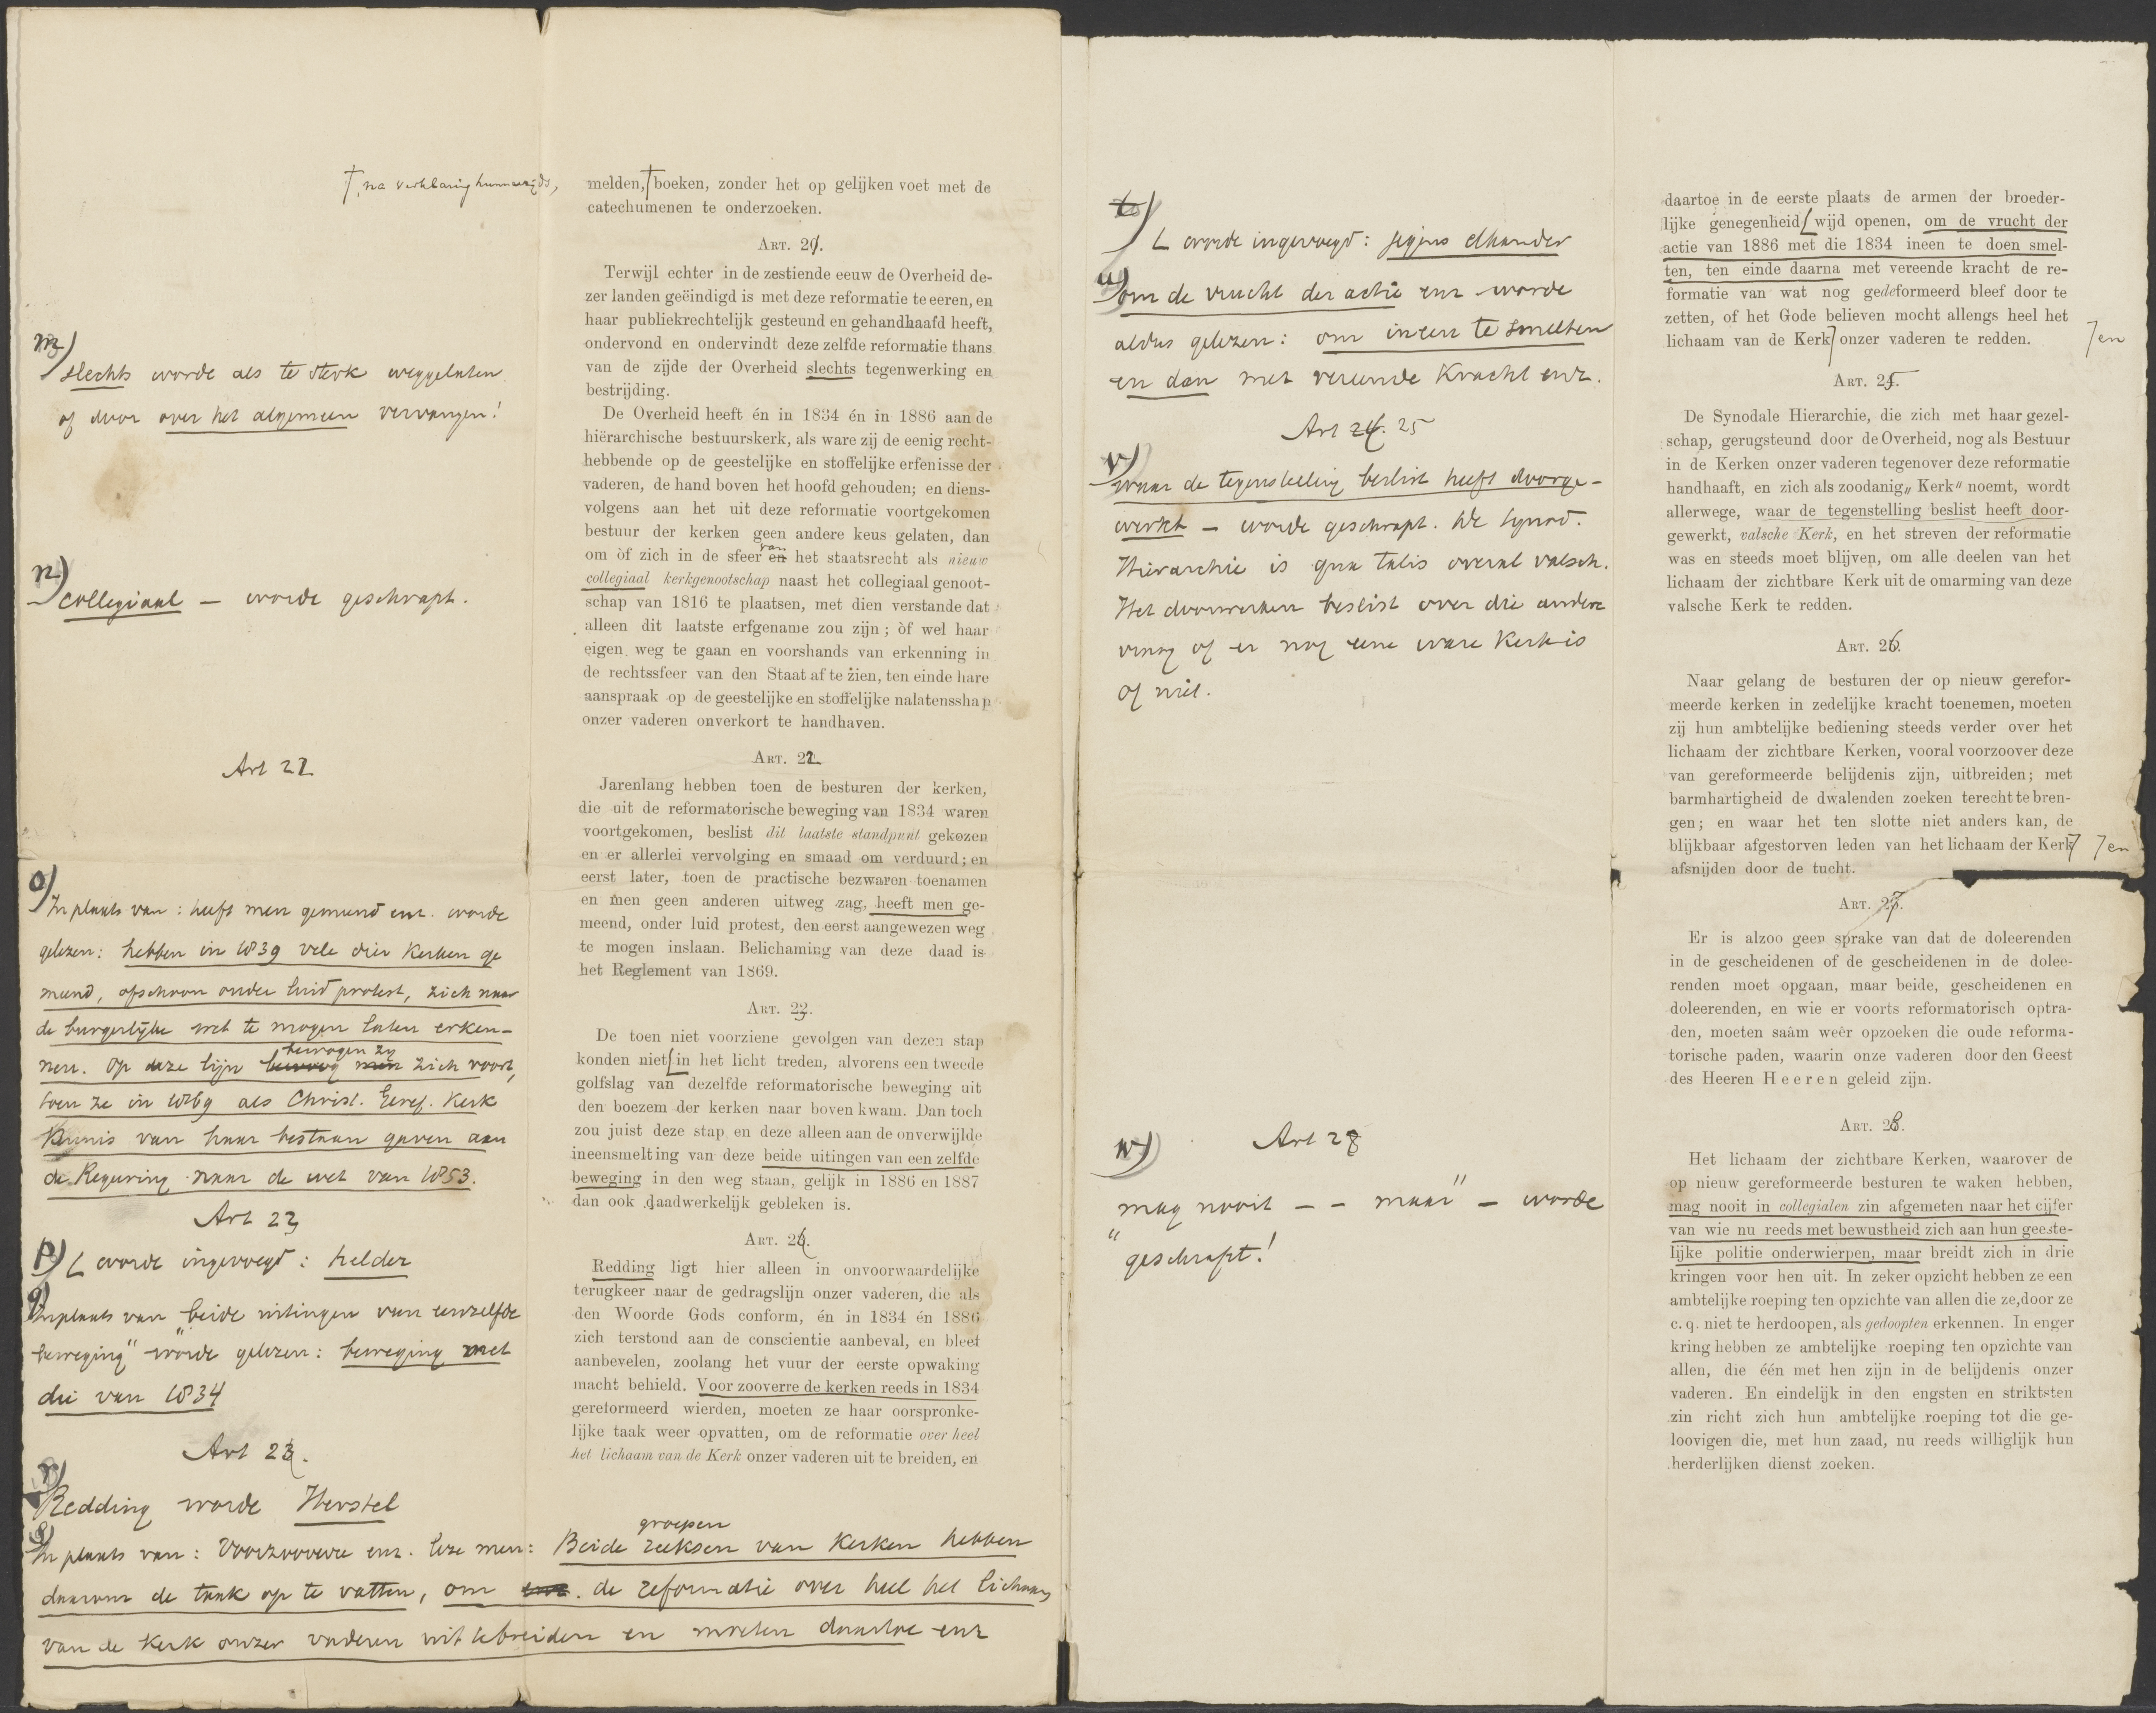 †, na verklaring hunnerzijds,
m)
slechts worde als te sterk weggelaten
of door over het algemeen vervangen!
n)
collegiaal — worde geschrapt.
Art 22
o)
In plaats van: heeft men gemeend enz. worde
gelezen: hebben in 1839 vele dier Kerken ge
meend, ofschoon onder luid protest, zich naar
de burgerlijke wet te mogen laten erken-
nen. Op deze lijn bewogen zij zich voort,
toen ze in 1869 als Christ. Geref. Kerk
Kennis van haar bestaan gaven aan
de Regeering naar de wet van 1853.
Art 23
p) L worde ingevoegd: helder
q)
In plaats van "beide uitingen van eenzelfde
beweging" worde gelezen: beweging met
die van 1834
Art 23.
r)
Redding worde Herstel
s)
In plaats van: Voorzooverre enz. leze men: Beide reeksen groepen van Kerken hebben
daarom de taak op te vatten, om de reformatie over heel het lichaam
van de Kerk onzer vaderen uit te breiden en moeten daartoe enz
melden,† boeken, zonder het op gelijken voet met de
catechumenen te onderzoeken.
ART. 21.
Terwijl echter in de zestiende eeuw de Overheid de-
zer landen geëindigd is met deze reformatie te eeren, en
haar publiekrechtelijk gesteund en gehandhaafd heeft,
ondervond en ondervindt deze zelfde reformatie thans
van de zijde der Overheid slechts tegenwerking en
bestrijding.
De Overheid heeft én in 1834 én in 1886 aan de
hiërarchische bestuurskerk, als ware zij de eenig recht-
hebbende op de geestelijke en stoffelijke erfenisse der
vaderen, de hand boven het hoofd gehouden; en diens-
volgens aan het uit deze reformatie voortgekomen
bestuur der kerken geen andere keus gelaten, dan
om òf zich in de sfeer van en het staatsrecht als nieuw
collegiaal kerkgenootschap naast het collegiaal genoot-
schap van 1816 te plaatsen, met dien verstande dat
alleen dit laatste erfgename zou zijn; òf wel haar
eigen weg te gaan en voorshands van erkenning in
de rechtssfeer van den Staat af te zien, ten einde hare
aanspraak op de geestelijke en stoffelijke nalatensshap
onzer vaderen onverkort te handhaven.
ART. 22
Jarenlang hebben toen de besturen der kerken,
die uit de reformatorische beweging van 1834 waren
voortgekomen, beslist dit laatste standpunt gekozen
en er allerlei vervolging en smaad om verduurd; en
eerst later, toen de practische bezwaren toenamen
en men geen anderen uitweg zag, heeft men ge-
meend, onder luid protest, den eerst aangewezen weg
te mogen inslaan. Belichaming van deze daad is
het Reglement van 1869.
ART. 23.
De toen niet voorziene gevolgen van dezen stap
konden niet L in het licht treden, alvorens een tweede
golfslag van dezelfde reformatorische beweging uit
den boezem der kerken naar boven kwam. Dan toch
zou juist deze stap en deze alleen aan de onverwijlde
ineensmelting van deze beide uitingen van een zelfde
beweging in den weg staan, gelijk in 1886 en 1887
dan ook daadwerkelijk gebleken is.
ART. 24.
Redding ligt hier alleen in onvoorwaardelijke
terugkeer naar de gedragslijn onzer vaderen, die als
den Woorde Gods conform, én in 1834 én 1886
zich terstond aan de conscientie aanbeval, en bleef
aanbevelen, zoolang het vuur der eerste opwaking
macht behield. Voor zooverre de kerken reeds in 1834
gereformeerd wierden, moeten ze haar oorspronke-
lijke taak weer opvatten, om de reformatie over heel
het lichaam van de Kerk onzer vaderen uit te breiden, en
t)
L worde ingevoegd: jegens elkander
u)
om de vrucht der actie enz worde
aldus gelezen: om ineen te smelten
en dan met vereende Kracht enz.
Art 24. 25
v)
waar de tegenstelling beslist heeft doorge-
werkt — worde geschrapt. De Synod.
Hierarchie is qua talis overal valsch.
Het doorwerken beslist over die andere
vraag of er nog eene ware Kerk is
of niet.
w) Art 28
"mag nooit — — maar" — worde
geschrapt!
daartoe in de eerste plaats de armen der broeder-
lijke genegenheid L wijd openen, om de vrucht der
actie van 1886 met die 1834 ineen te doen smel-
ten, ten einde daarna met vereende kracht de re-
formatie van wat nog gedeformeerd bleef door te
zetten, of het Gode believen mocht allengs heel het
lichaam van de Kerk ⁊ onzer vaderen te redden. ⁊en
ART. 25.
De Synodale Hierarchie, die zich met haar gezel-
schap, gerugsteund door de Overheid, nog als Bestuur
in de Kerken onzer vaderen tegenover deze reformatie
handhaaft, en zich als zoodanig „Kerk" noemt, wordt
allerwege, waar de tegenstelling beslist heeft door-
gewerkt, valsche Kerk, en het streven der reformatie
was en steeds moet blijven, om alle deelen van het
lichaam der zichtbare Kerk uit de omarming van deze
valsche Kerk te redden.
ART. 26.
Naar gelang de besturen der op nieuw gerefor-
meerde kerken in zedelijke kracht toenemen, moeten
zij hun ambtelijke bediening steeds verder over het
lichaam der zichtbare Kerken, vooral voorzoover deze
van gereformeerde belijdenis zijn, uitbreiden; met
barmhartigheid de dwalenden zoeken terecht te bren-
gen; en waar het ten slotte niet anders kan, de
blijkbaar afgestorven leden van het lichaam der Kerk ⁊ ⁊en
afsnijden door de tucht.
ART. 27.
Er is alzoo geen sprake van dat de doleerenden
in de gescheidenen of de gescheidenen in de dolee-
renden moet opgaan, maar beide, gescheidenen en
doleerenden, en wie er voorts reformatorisch optra-
den, moeten saâm weêr opzoeken die oude reforma-
torische paden, waarin onze vaderen door den Geest
des Heeren Heeren geleid zijn.
ART. 28.
Het lichaam der zichtbare Kerken, waarover de
op nieuw gereformeerde besturen te waken hebben,
mag nooit in collegialen zin afgemeten naar het cijfer
van wie nu reeds met bewustheid zich aan hun geeste-
lijke politie onderwierpen, maar breidt zich in drie
kringen voor hen uit. In zeker opzicht hebben ze een
ambtelijke roeping ten opzichte van allen die ze, door ze
c. q. niet te herdoopen, als gedoopten erkennen. In enger
kring hebben ze ambtelijke roeping ten opzichte van
allen, die één met hen zijn in de belijdenis onzer
vaderen. En eindelijk in den engsten en striktsten
zin richt zich hun ambtelijke roeping tot die ge-
loovigen die, met hun zaad, nu reeds williglijk hun
herderlijken dienst zoeken.